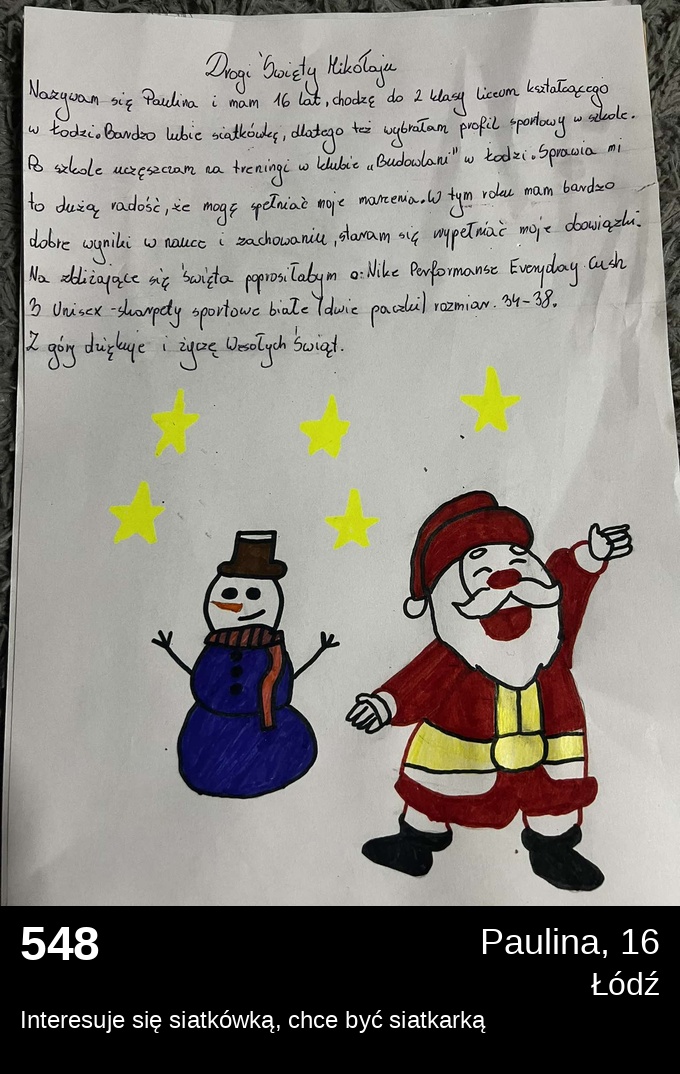 Drogi Święty Mikołaju
Nazywam się Paulina i mam 16 lat, chodzę do 2 klasy liceum kształcącego
w Łodzi. Bardzo lubie siatkówkę, dlatego też wybrałam profil sportowy w szkole.
Po szkole uczęszczam na treningi w klubie „Budowlani" w Łodzi. Sprawia mi
to dużą radość, że mogę spełniać moje marzenia. W tym roku mam bardzo
dobre wyniki w nauce i zachowaniu, staram się wypełniać moje obowiązki.
Na zbliżające się święta poprosiłabym o: Nike Performanse Everyday Cush
3 Unisex - skarpety sportowe białe (dwie paczki) rozmiar. 34-38.
Z góry dziękuje i życzę Wesołych Świąt.
548
Paulina, 16
Łódź
Interesuje się siatkówką, chce być siatkarką